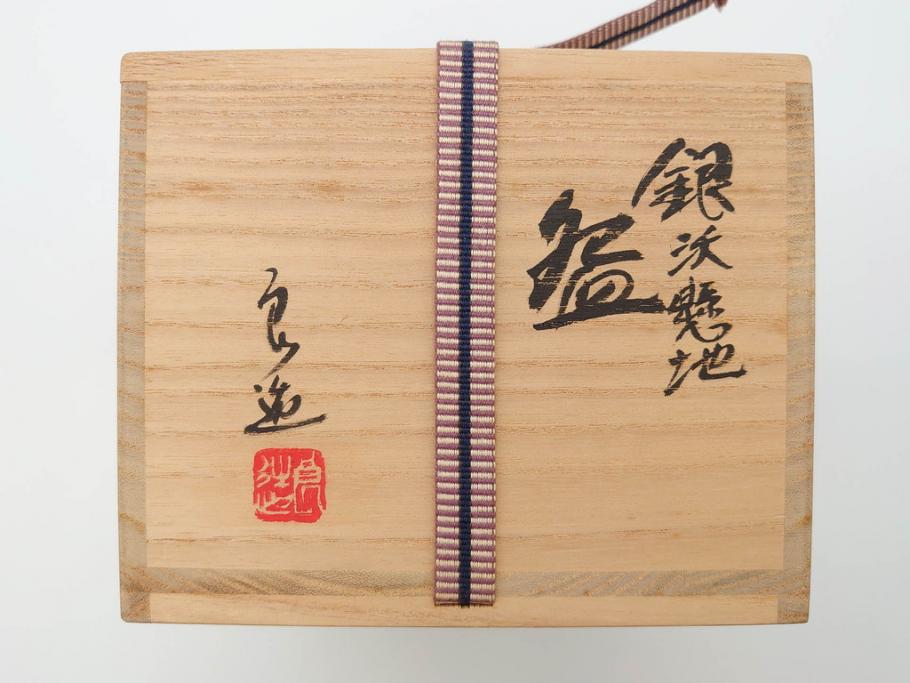 銀沃懸地
盌
良造